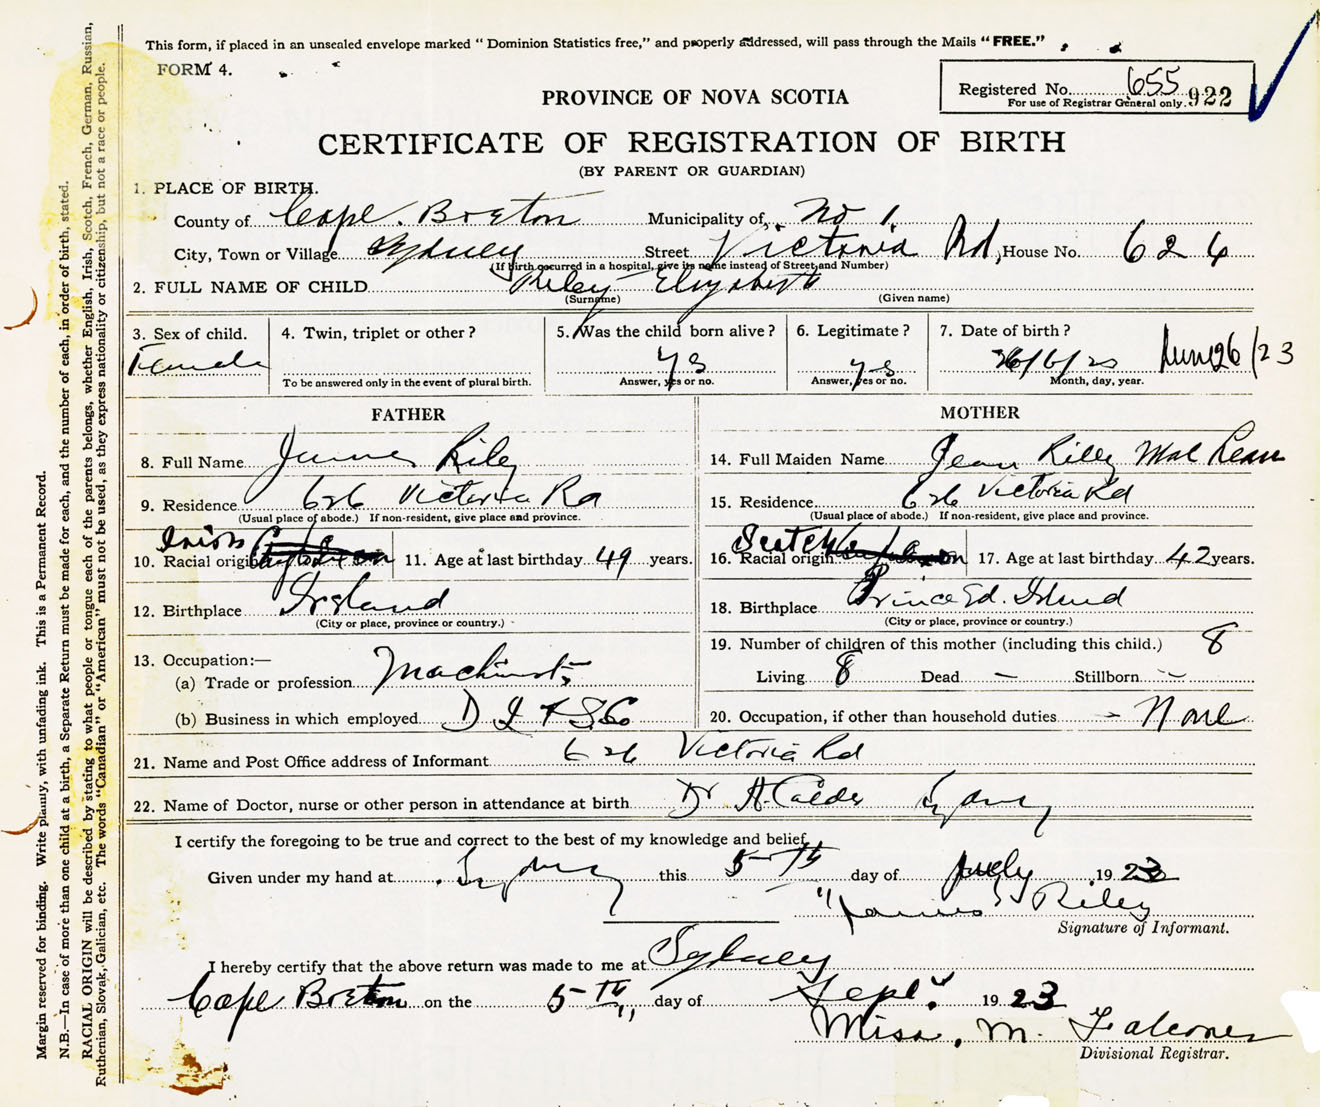 This form, if placed in an unsealed envelope marked "Dominion Statistics free," and properly addressed, will pass through the Mails "FREE."
FORM 4.
Registered No. 655 922
For use of Registrar General only.
PROVINCE OF NOVA SCOTIA
CERTIFICATE OF REGISTRATION OF BIRTH
(BY PARENT OR GUARDIAN)
1. PLACE OF BIRTH.
County of Cape Breton Municipality of No 1
City, Town or Village Sydney Street Victoria Rd, House No. 626
(If birth occurred in a hospital, give its name instead of Street and Number)
2. FULL NAME OF CHILD Riley Elizabeth
(Surname) (Given name)
3. Sex of child. 4. Twin, triplet or other? 5. Was the child born alive? 6. Legitimate? 7. Date of birth?
Female yes yes 26/6/23 June 26/23
To be answered only in the event of plural birth. Answer, yes or no. Answer, yes or no. Month, day, year.
FATHER MOTHER
8. Full Name James Riley 14. Full Maiden Name Jean Riley Mac Lean
9. Residence 626 Victoria Rd 15. Residence 626 Victoria Rd
(Usual place of abode.) If non-resident, give place and province. (Usual place of abode.) If non-resident, give place and province.
10. Racial origin Irish 11. Age at last birthday 49 years. 16. Racial origin Scotch 17. Age at last birthday 42 years.
12. Birthplace Ireland 18. Birthplace Prince Ed. Island
(City or place, province or country.) (City or place, province or country.)
13. Occupation:— 19. Number of children of this mother (including this child.) 8
(a) Trade or profession Machinist Living 8 Dead — Stillborn —
(b) Business in which employed D I & S Co 20. Occupation, if other than household duties None
21. Name and Post Office address of Informant 626 Victoria Rd
22. Name of Doctor, nurse or other person in attendance at birth Dr A. Calder Sydney
I certify the foregoing to be true and correct to the best of my knowledge and belief,
Given under my hand at Sydney this 5th day of July 1923
"James Riley
Signature of Informant.
I hereby certify that the above return was made to me at Sydney
Cape Breton on the 5th day of Sept. 1923
Miss. M. Falconer
Divisional Registrar.
Margin reserved for binding. Write plainly, with unfading ink. This is a Permanent Record.
N.B.—In case of more than one child at a birth, a Separate Return must be made for each, and the number of each, in order of birth, stated.
RACIAL ORIGIN will be described by stating to what people or tongue each of the parents belongs, whether English, Irish, Scotch, French, German, Russian,
Ruthenian, Slovak, Galician, etc. The words "Canadian" or "American" must not be used, as they express nationality or citizenship, but not a race or people.